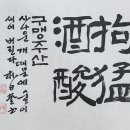 狗猛
酒酸
구맹주산
사나운 개 때문에 술이